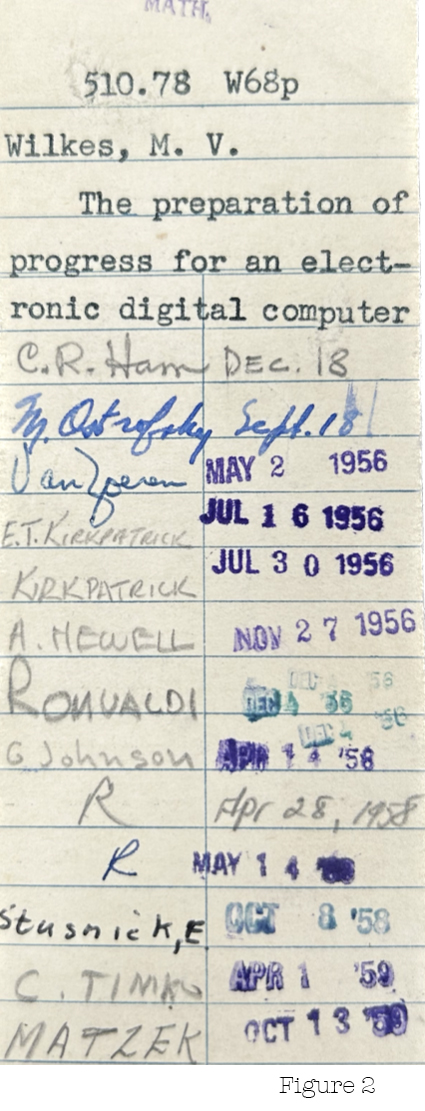 MATH.
510.78 W68p
Wilkes, M. V.
The preparation of
progress for an elect-
ronic digital computer
C.R. Ham DEC. 18
M. Ostrofsky Sept. 18
MAY 2 1956
E.T. KIRKPATRICK JUL 16 1956
KIRKPATRICK JUL 30 1956
A. NEWELL NOV 27 1956
DEC 4 '56
ROMUALDI DEC 4 '56
DEC 4 '56
G Johnson APR 14 '58
R Apr 28, 1958
R MAY 14
Stusnick, E OCT 8 '58
C. TIMKO APR 1 '59
MATZEK OCT 13 '59
Figure 2